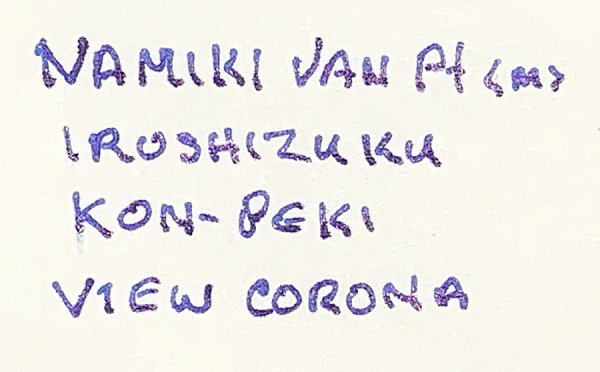 NAMIKI VAN Pt <M>
IROSHIZUKU
KON-PEKI
VIEW CORONA